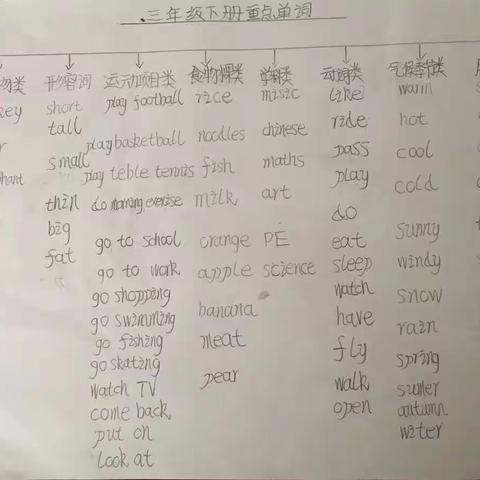 三年级下册重点单词
物类
key
r
hant
形容词
short
tall
small
thin
big
fat
运动项目类
play football
play basketball
play teble tennis
do morning exercise
go to school
go to work
go shopping
go swimming
go fishing
go skating
watch TV
come back
put on
look at
食物水果类
rice
noodles
fish
milk
orange
apple
banana
meat
pear
学科类
misic
chinese
maths
art
PE
science
动词类
like
ride
pass
play
do
eat
sleep
watch
have
fly
walk
open
气候季节类
warm
hot
cool
cold
sunny
windy
snow
rain
spring
sumer
autumn
witer